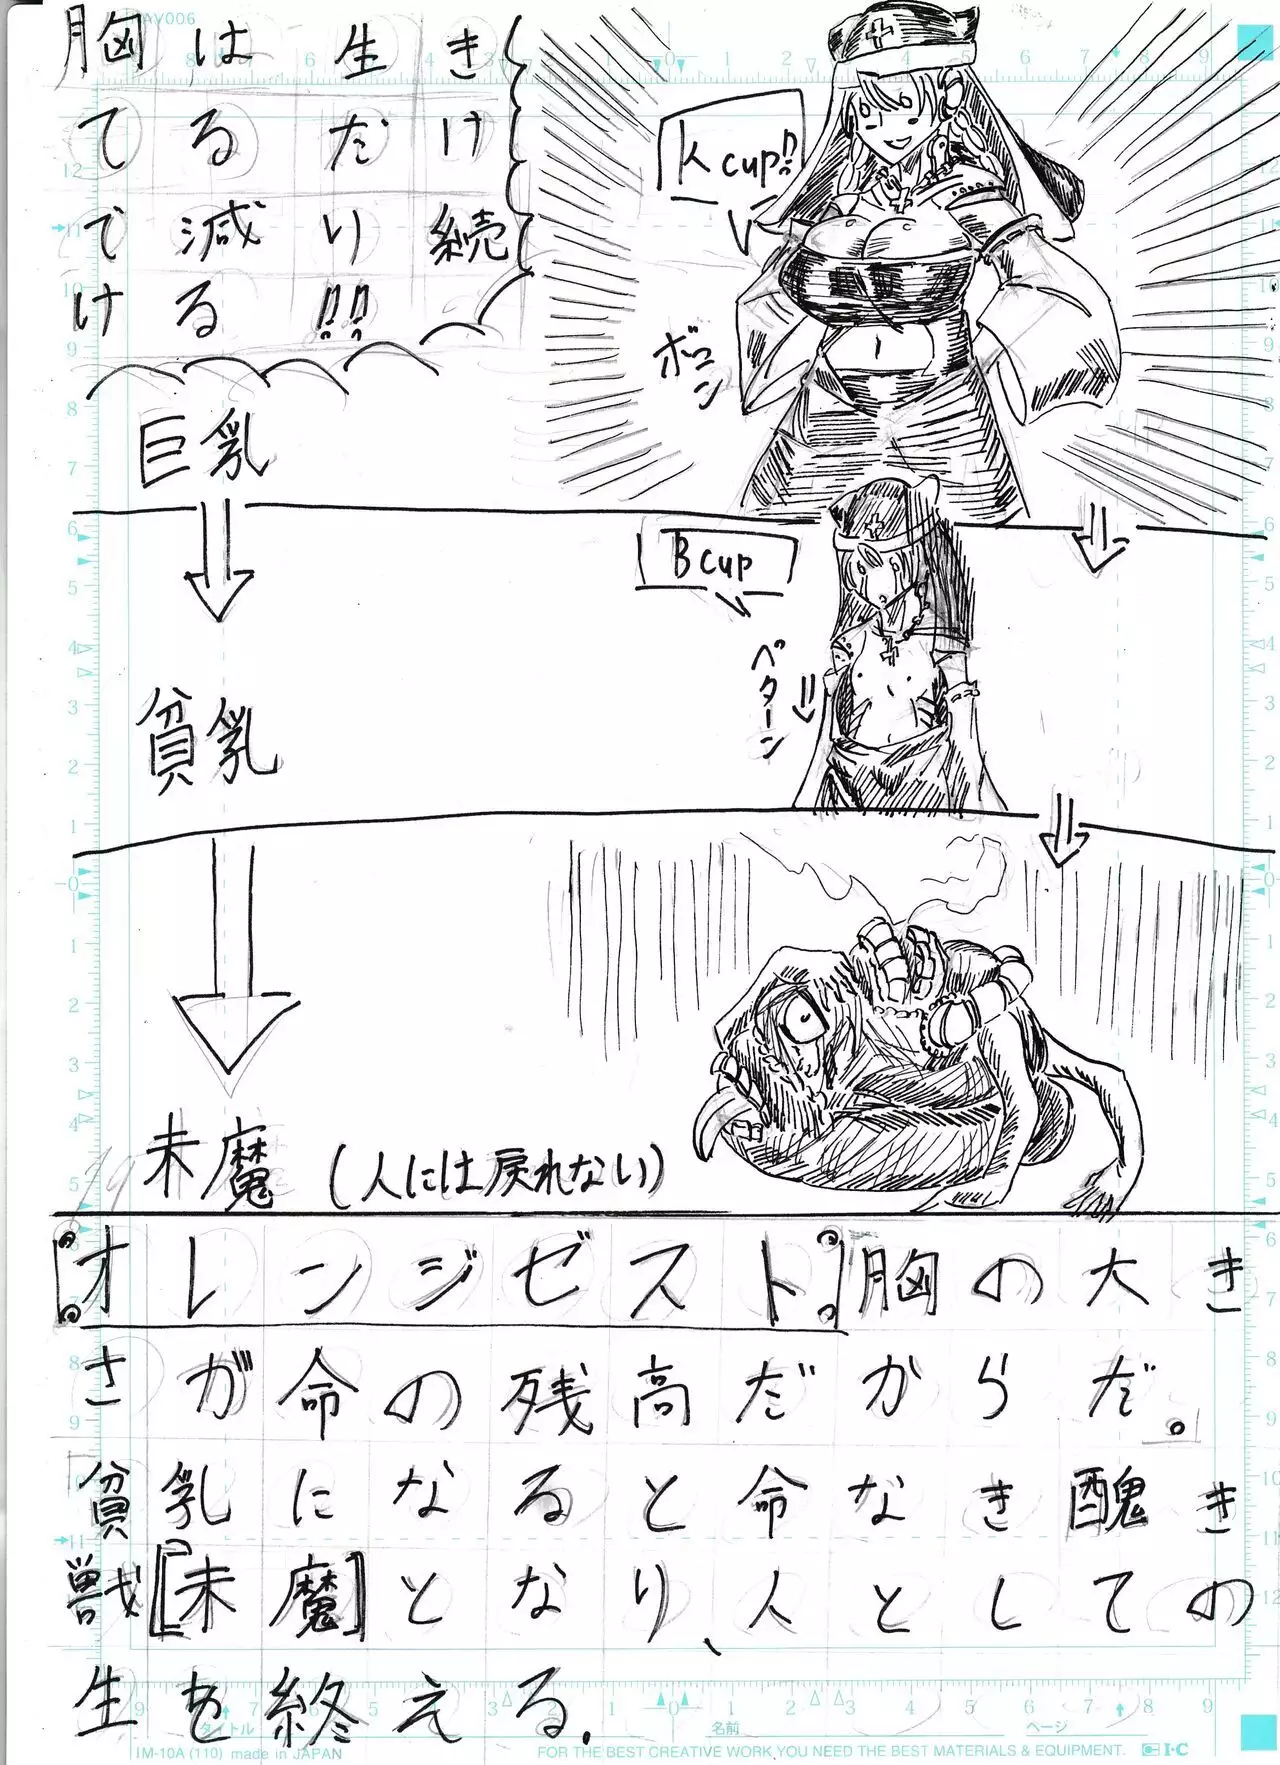 胸は生き
てるだけ
で減り続
ける!!!!
K cup!!
ボイン
巨乳
B cup
ペターン
貧乳
未魔 (人には戻れない)
『オレンジゼスト』胸の大き
さが命の残高だからだ。
貧乳になると命なき醜き
獣『未魔』となり、人としての
生を終える.
タイトル
名前
ページ
IM-10A (110) made in JAPAN
FOR THE BEST CREATIVE WORK, YOU NEED THE BEST MATERIALS & EQUIPMENT.
I·C